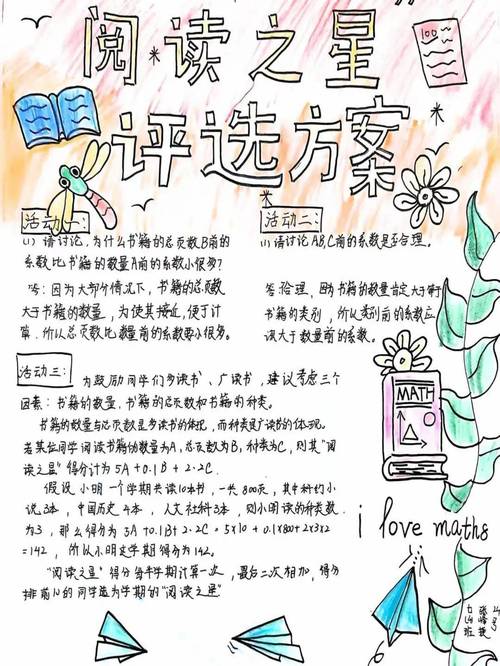 阅读之星
评选方案
100
活动一:
(1) 请讨论,为什么书籍的总页数B前的
系数比书籍的数量A前的系数小很多?
答:因为大部分情况下,书籍的总页数
大于书籍的数量,为使其接近,便于计
算,所以总页数比数量前的系数要小很多。
活动二:
(1) 请讨论A,B,C前的系数是否合理。
答:合理,因为书籍的数量肯定大于等于
书籍的类别,所以类别前的系数应
该大于数量前的系数。
活动三:
为鼓励同学们多读书、广读书,建议考虑三个
因素:书籍的数量、书籍的总页数和书籍的种类。
书籍的数量与总页数是多读书的体现,而种类是广读书的体现。
若某位同学阅读书籍的数量为A,总页数为B,种类为C,则其"阅
读之星"得分计为 5A+0.1B+2·2C.
假设小明一个学期共读10本书,一共800页,其中科幻小
说3本,中国历史4本,人文社科3本,则小明读的种类数
为3,那么得分为5A+0.1B+2·2C=5×10+0.1×800+2×3×2
=142,所以小明定学期得分为142。
"阅读之星"得分每半学期计算一次,最后二次相加,得分
排前10的同学选为学期的"阅读之星"
MATH
i love maths